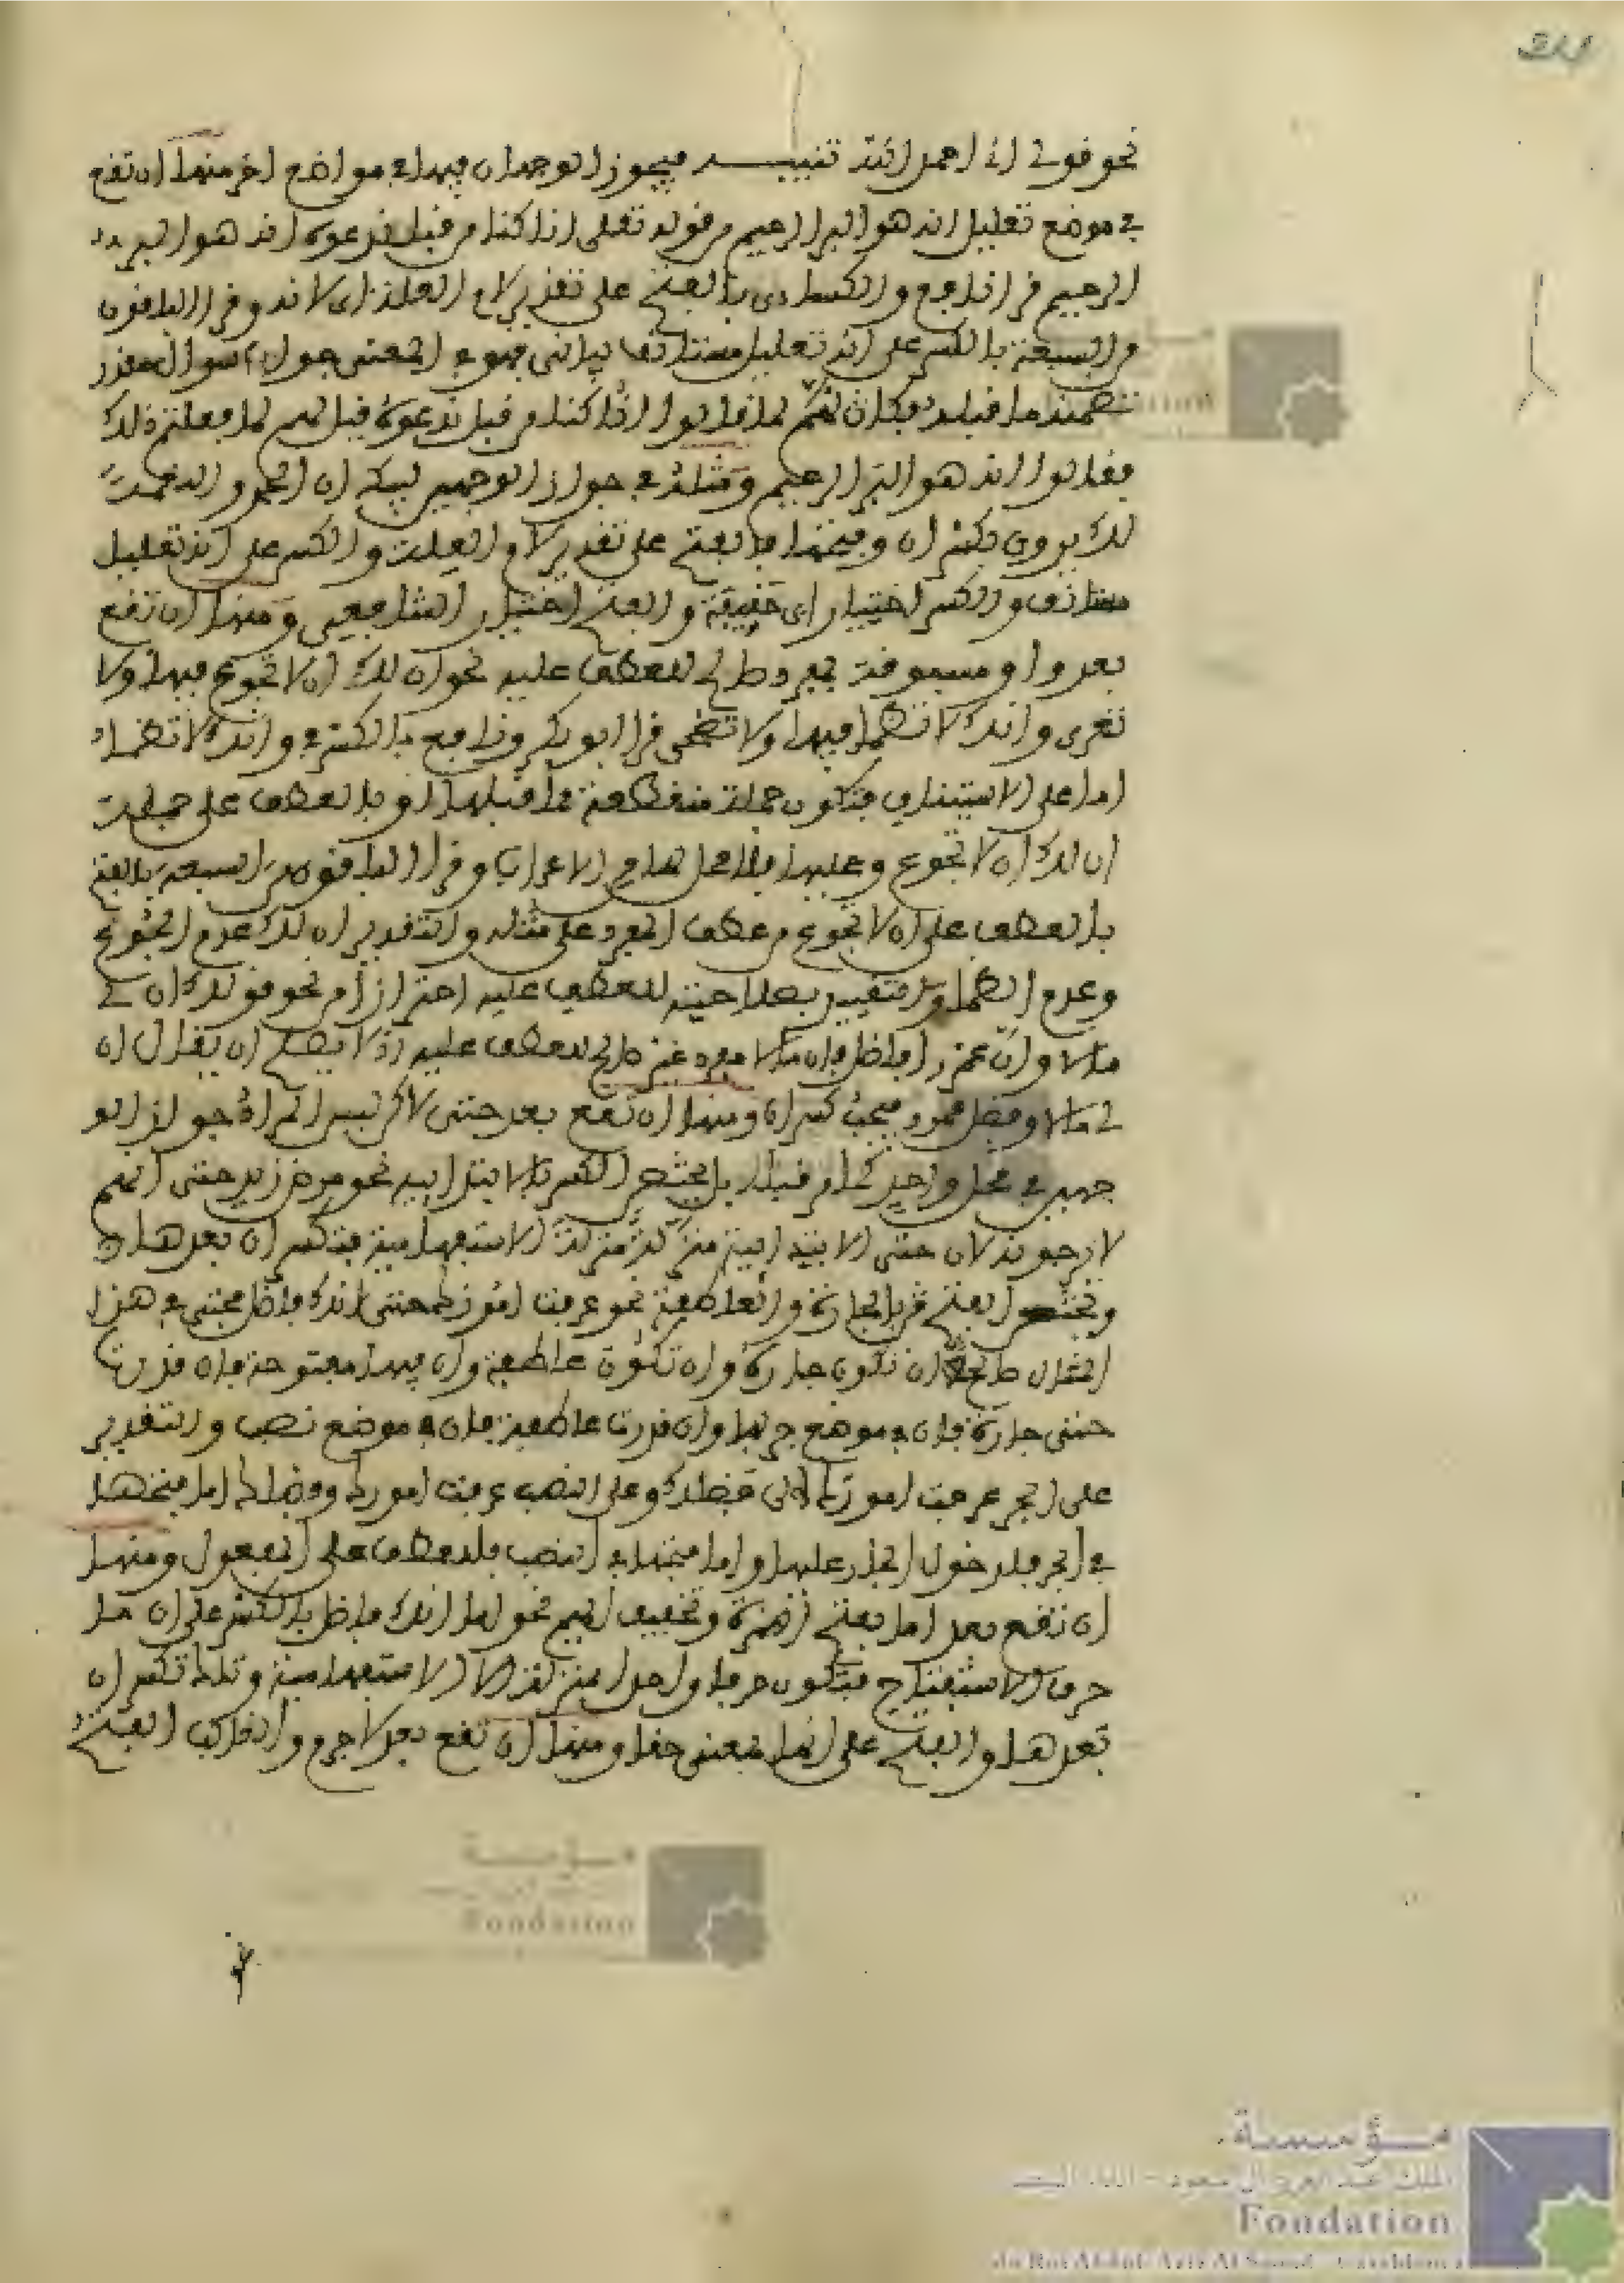 نحو قولي اني احمد الله تنبيه فيجوز الوجهان فيها في مواضع اخر منها ان تقع
في موضع تعليل انه هو البر الرحيم من قوله تعلى انا كنا من قبل ندعوه انه هو البر
الرحيم قرا نافع والكساءي بالفتح على تقدير لام العلة اي لانه وقرا الباقون
من السبعة بالكسر على انه تعليل مستانف بياني فهو في المعنى جواب سوال مقدر
تضمنه ما قبله فكانهم لما قالوا انا كنا من قبل ندعوه قيل لهم لم فعلتم ذلك
فقالوا انه هو البر الرحيم ومثله في جواز الوجهين لبيك ان الحمد والنعمة
لك يروى بكسر ان وفتحها فالفتح على تقدير لام العلة والكسر على انه تعليل
مستانف والكسر اختيار ابي حنيفة والفتح اختيار الشافعي ومنها ان تقع
بعد واو مسبوقة بمفرد صالح للعطف عليه نحو ان لك ان لا تجوع فيها ولا
تعرى وانك لا تظما فيها ولا تضحى قرا ابو بكر ونافع بالكسر في وانك لا تظما
اما على الاستيناف فتكون جملة منقطعة عما قبلها او بالعطف على جملة
ان لك ان لا تجوع وعليها فلا محل لها من الاعراب وقرا الباقون من السبعة بالفتح
بالعطف على ان لا تجوع من عطف المفرد على مثله والتقدير ان لك عدم الجوع
وعدم الظما وتقييد بصلاحيته للعطف عليه احترازا من نحو قولك ان لي
مالا وان عمرا فاضل فان مالا مفرد غير صالح للعطف عليه اذ لا يصح ان يقال ان
لي مالا وفضل عمرو فيجب كسر ان ومنها ان تقع بعد حتى لاكن ليس المراد جواز الو
جهين في محل واحد كما قبله بل يختص الكسر بالابتدايية نحو مرض زيد حتى انهم
لا يرجونه لان حتى الابتدايية منزلة منزلة الا الاستفهامية فتكسر ان بعدها
ويختص الفتح بالجارة والعاطفة نحو عرفت امورك حتى انك فاضل فحتى في هذا
المثال صالحة ان تكون جارة وان تكون عاطفة وان فيها مفتوحة فان قدرت
حتى جارة فان في موضع جر بها وان قدرت عاطفة فان في موضع نصب والتقدير
على الجر عرفت امورك الى فضلك وعلى النصب عرفت امورك وفضلك اما فتحها
في الجر فلدخول الجار عليها واما فتحها في النصب فللعطف على المفعول ومنها
ان تقع بعد اما بفتح الهمزة وتخفيف الميم نحو اما انك فاضل بالكسر على ان ما
حرف الاستفتاح فتكون حرفا واحدا بمنزلة الا الاستفهامية وتلك تكسر ان
بعدها والفتح على انها بمعنى حقا ومنها ان تقع بعد لا جرم والغالب الفتح
مؤسسة
Fondation